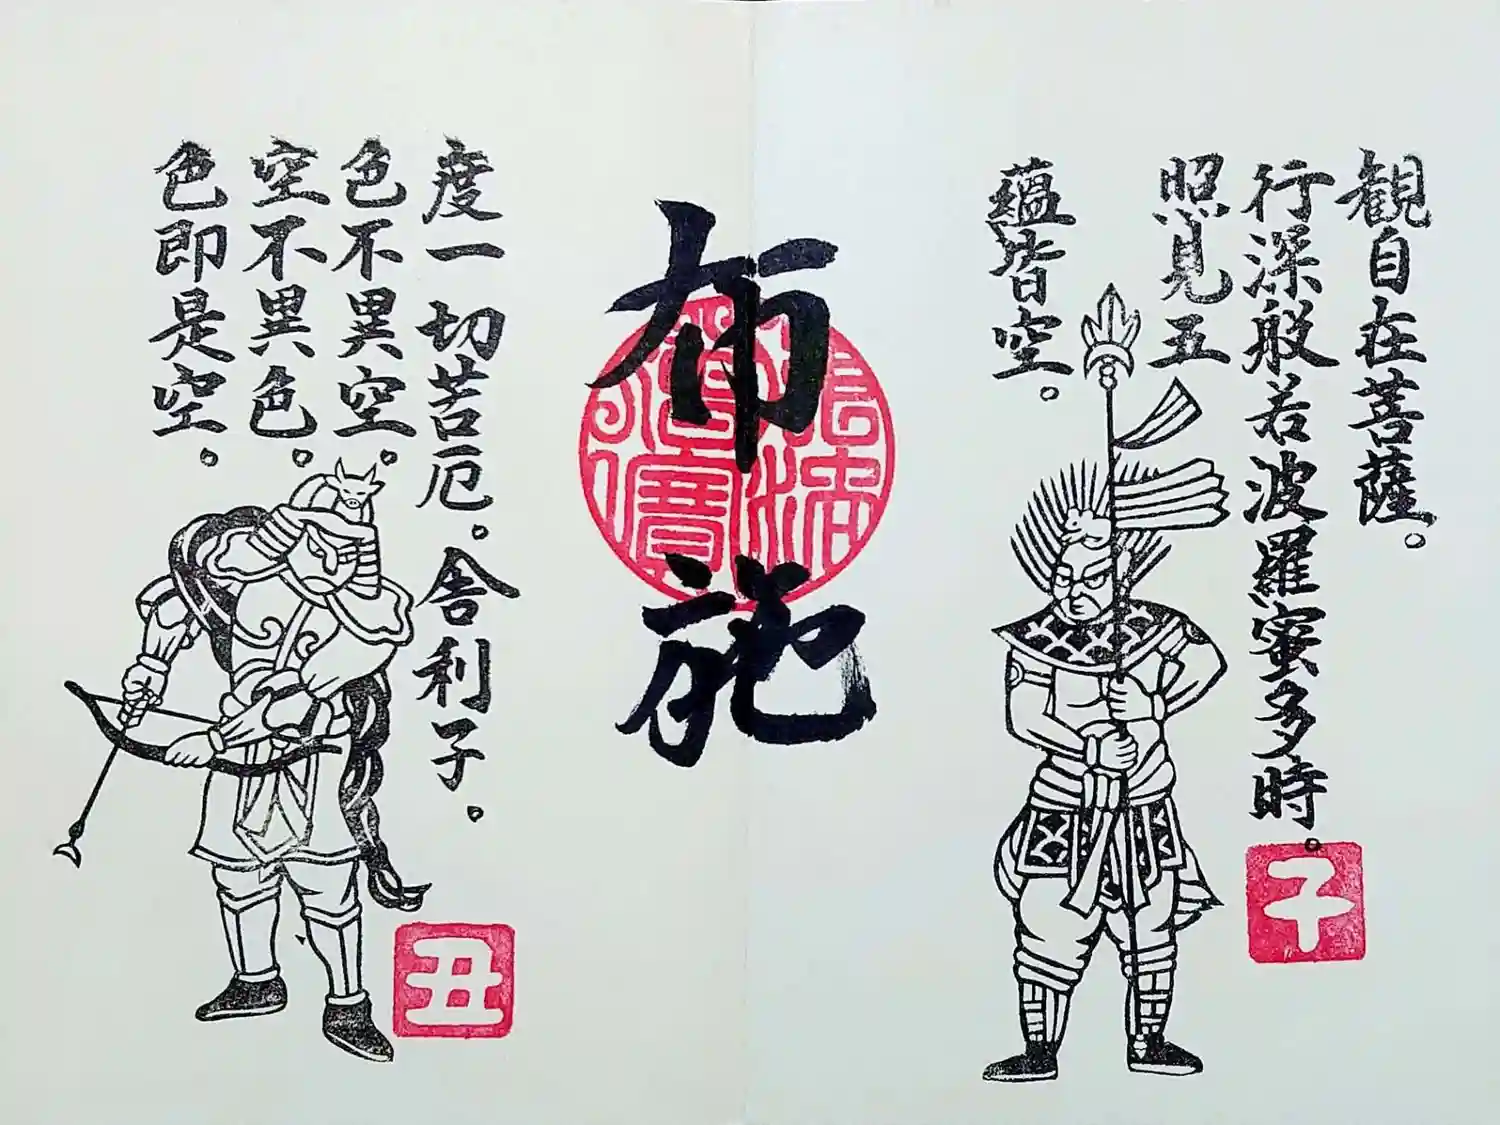 観自在菩薩。
行深般若波羅蜜多時。
照見五
蘊皆空。
子
布施
度一切苦厄。舎利子。
色不異空。
空不異色。
色即是空。
丑